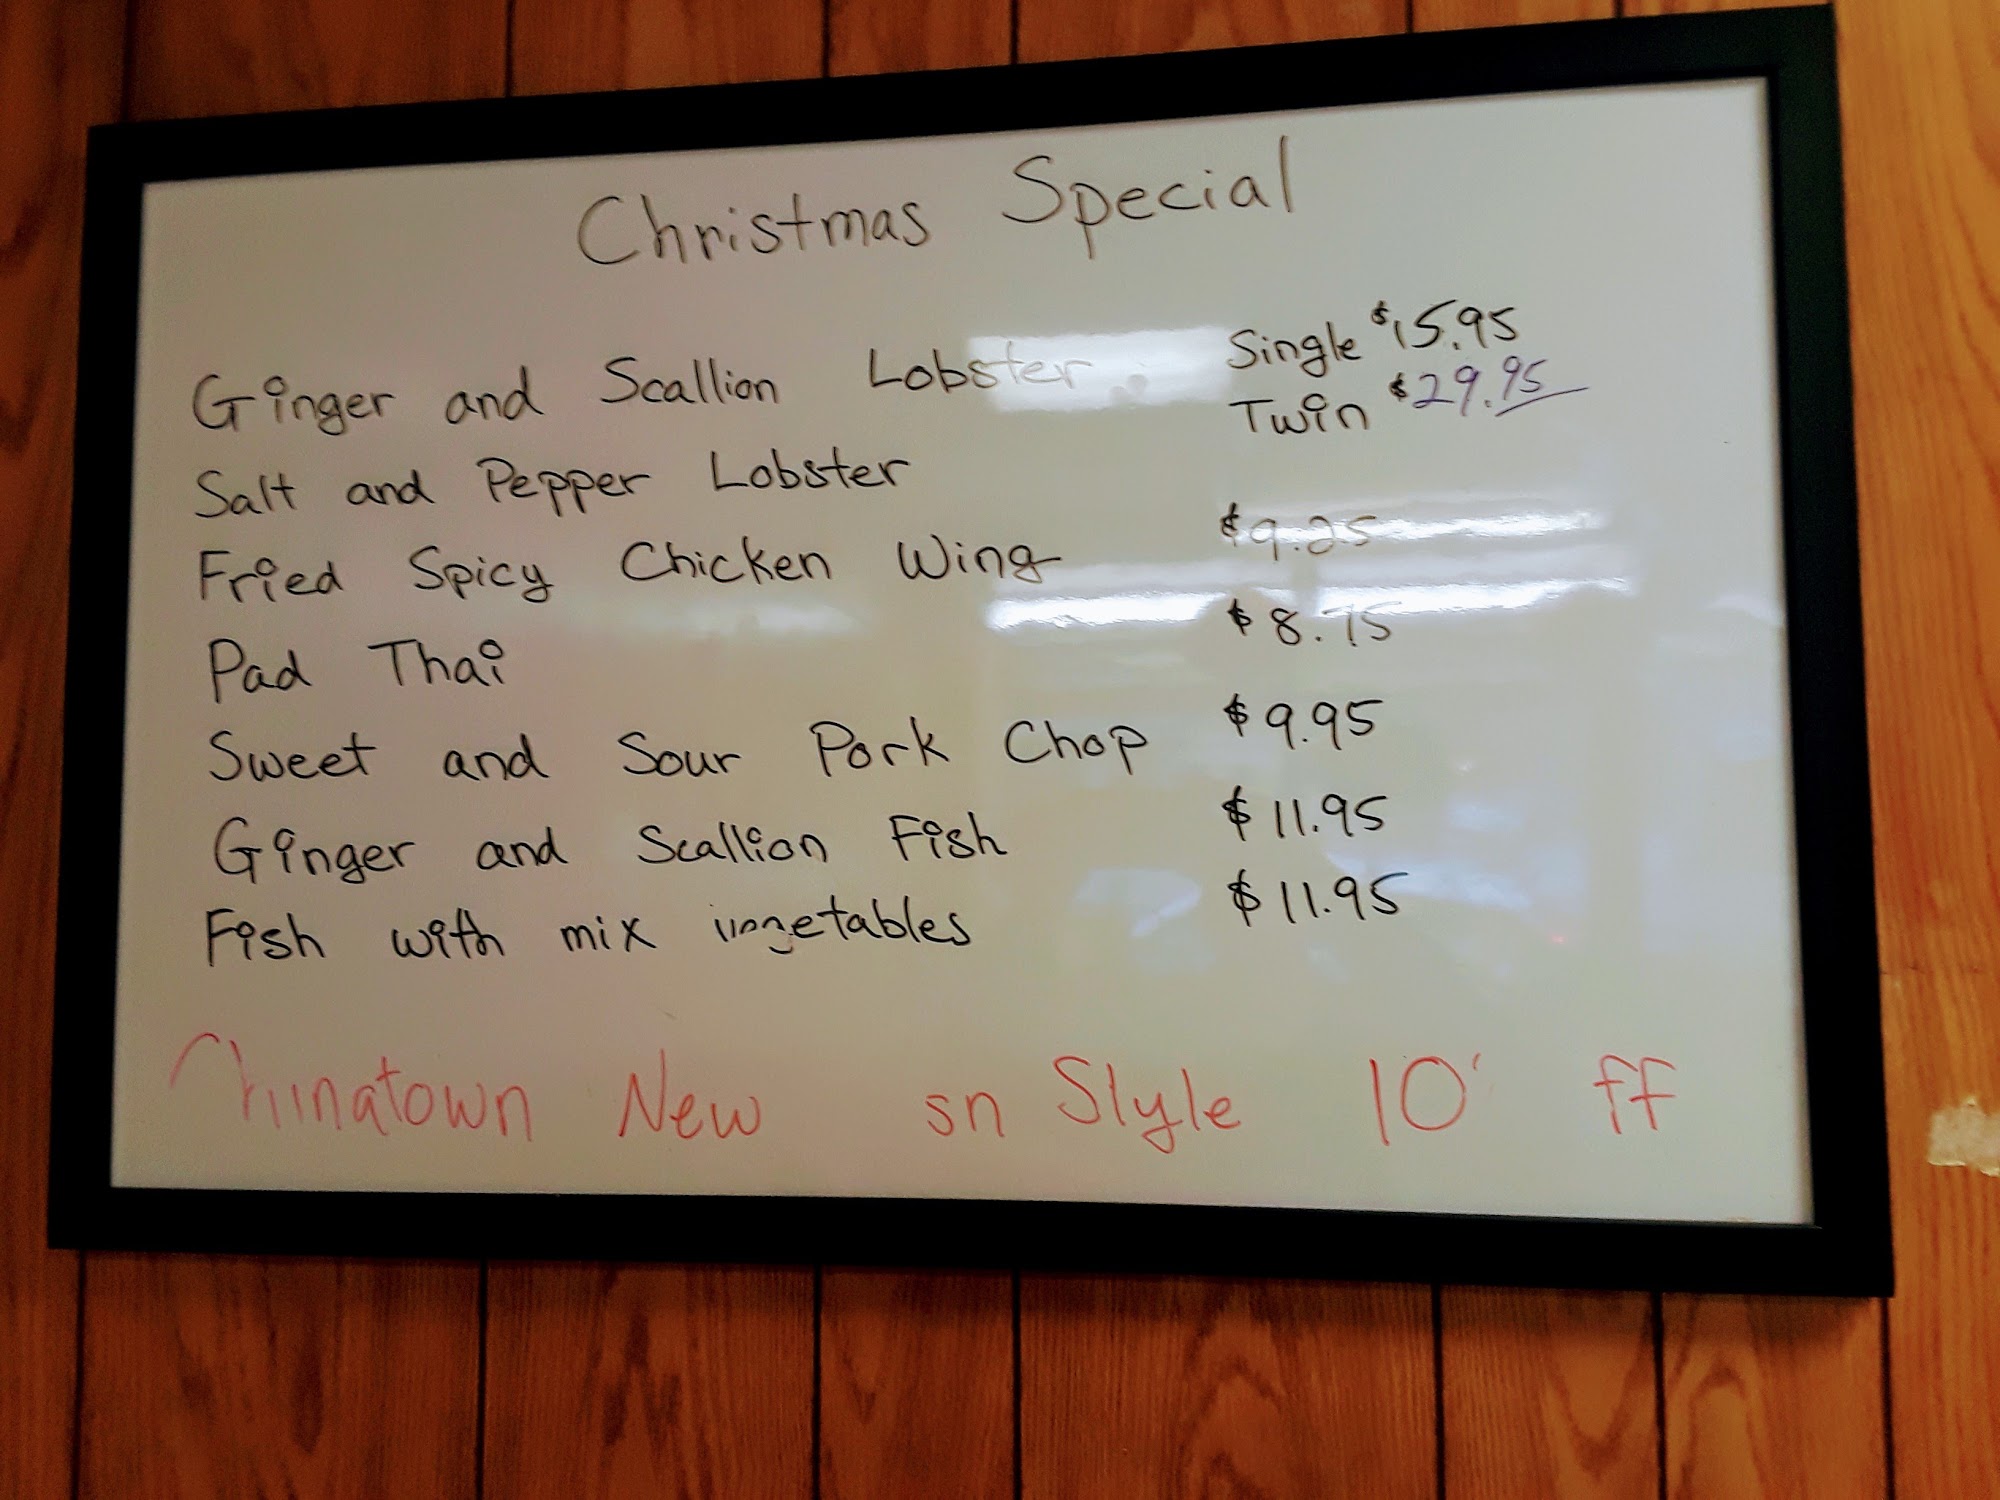 Christmas Special
Ginger and Scallion Lobster Single $15.95
Twin $29.95
Salt and Pepper Lobster
Fried Spicy Chicken Wing $9.25
Pad Thai $8.75
Sweet and Sour Pork Chop $9.95
Ginger and Scallion Fish $11.95
Fish with mix vegetables $11.95
Chinatown New sn Slyle 10 ff